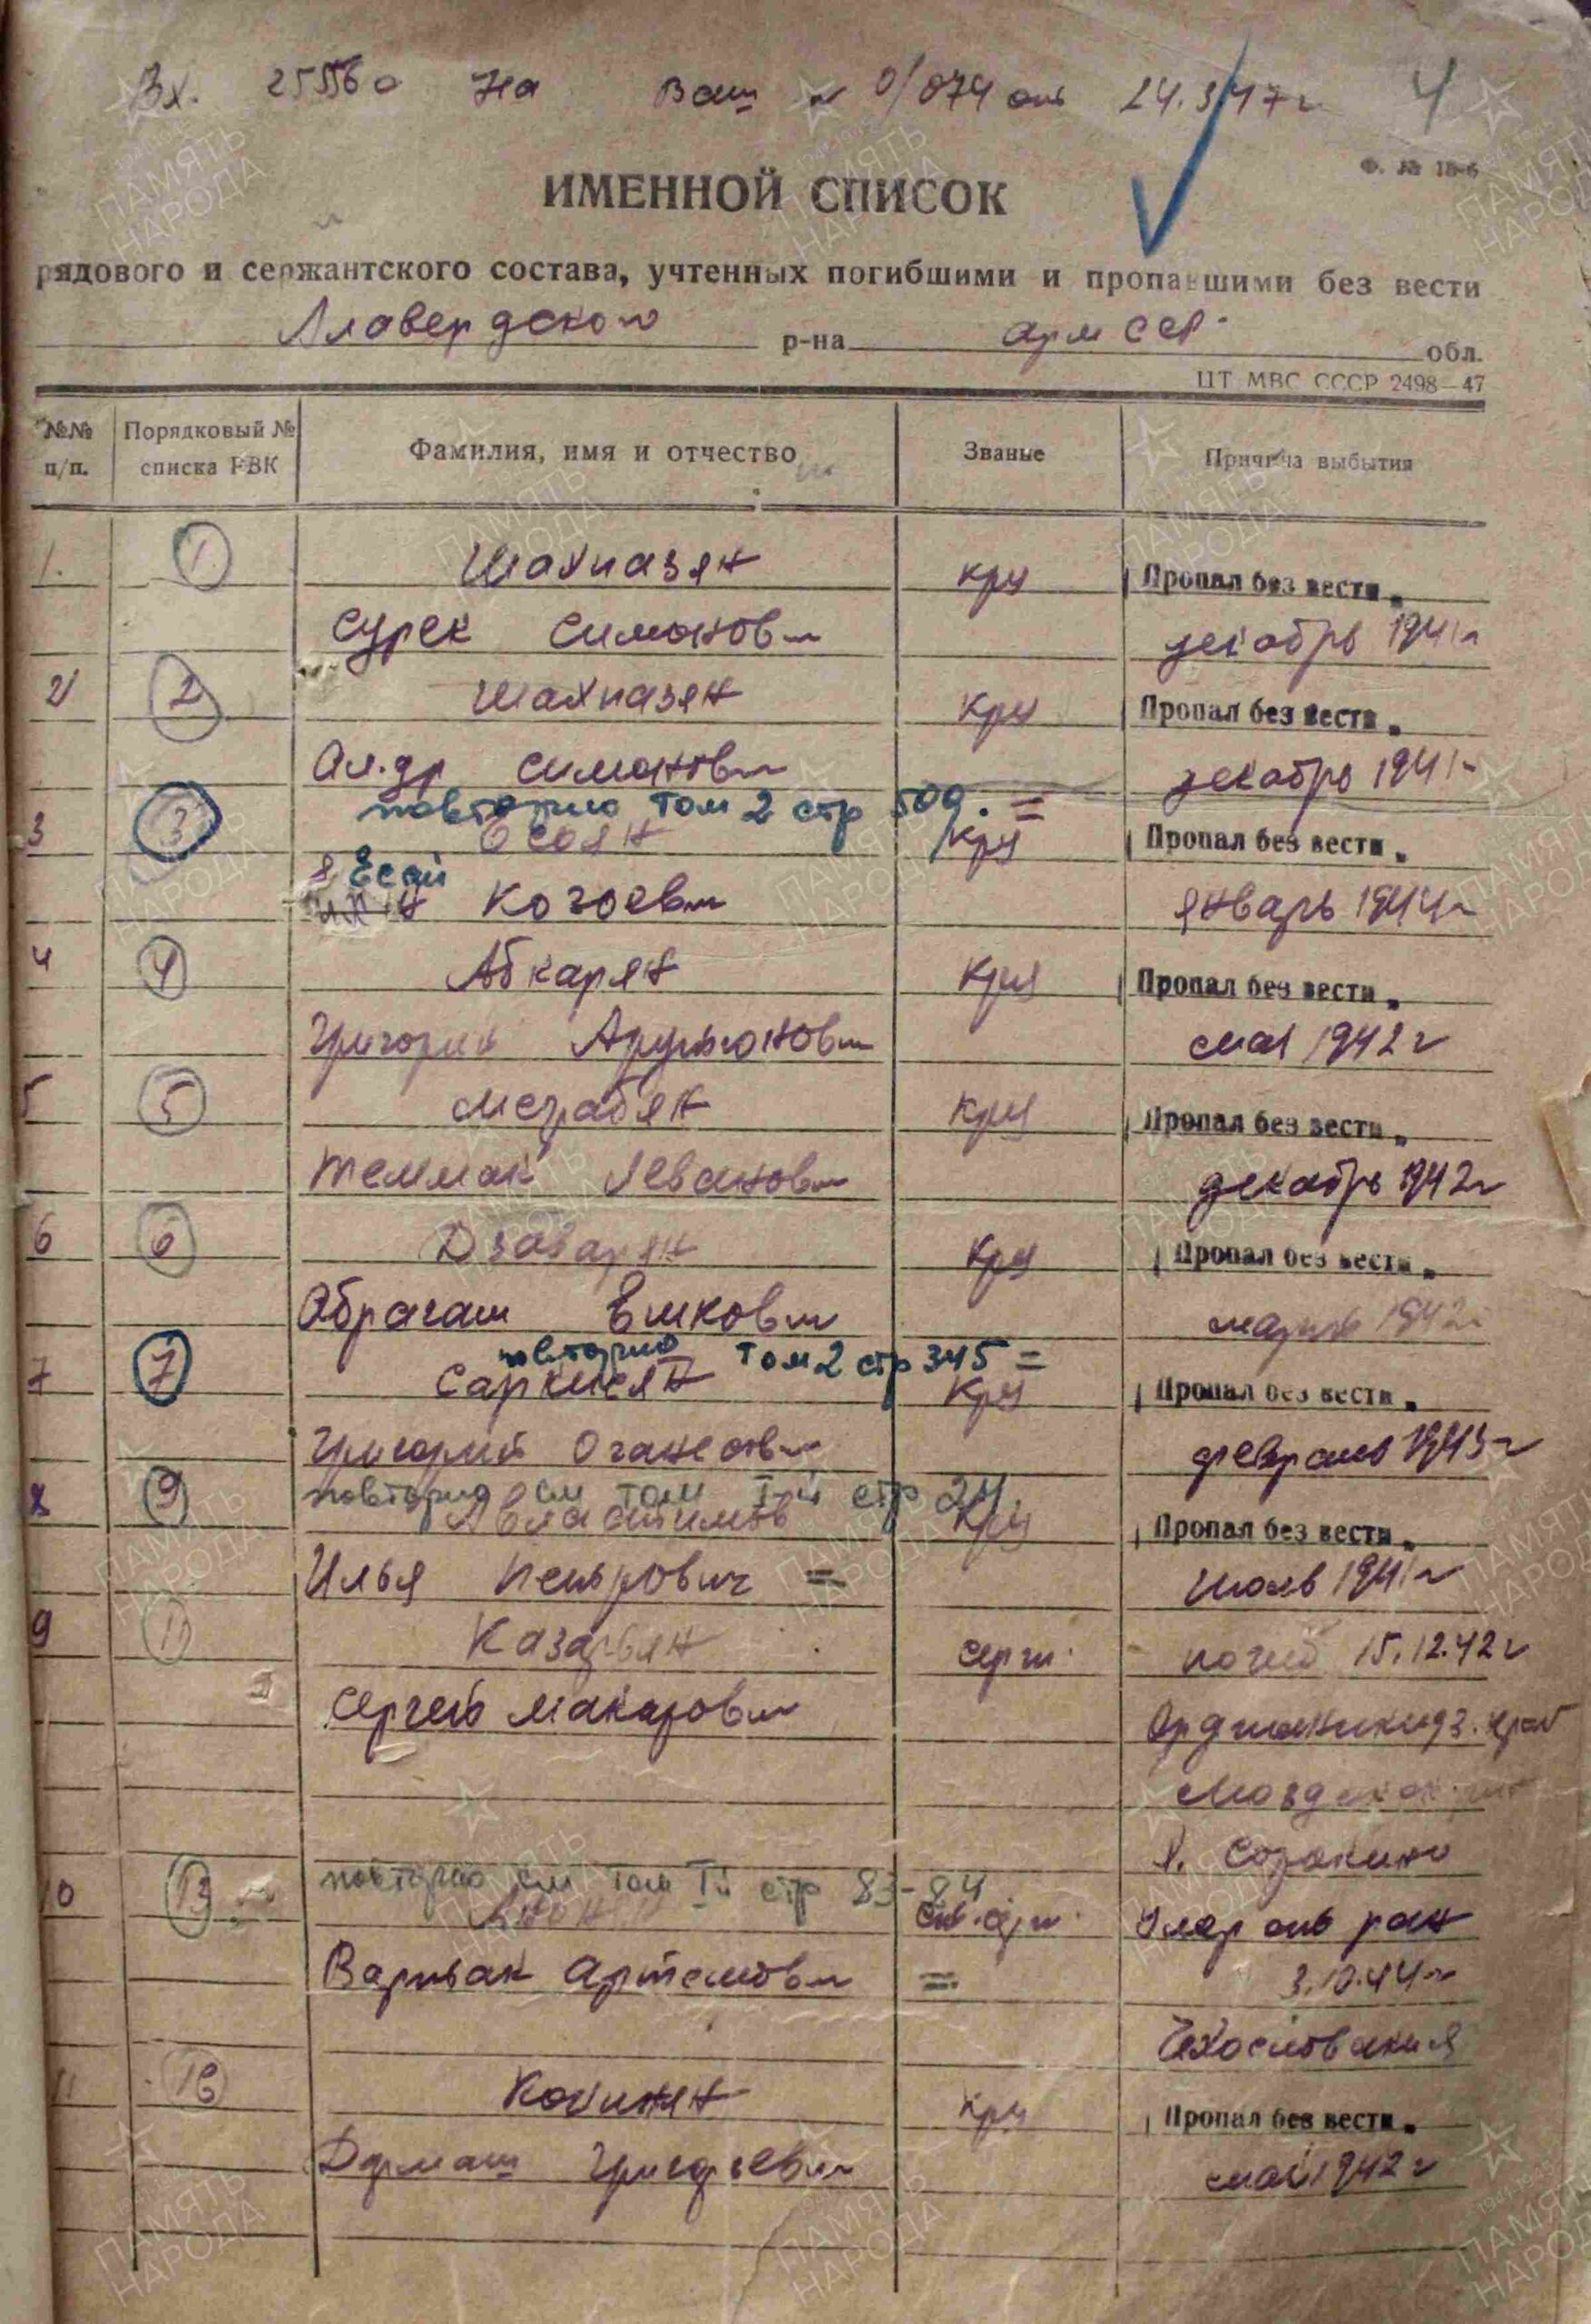 Вх. 25556 о На Ваш № 0/074 от 24.3.47 г 4
Ф. № 18-б
ИМЕННОЙ СПИСОК
рядового и сержантского состава, учтенных погибшими и пропавшими без вести
Алавердского р-на Арм ССР обл.
ЦТ МВС СССР 2498—47
№№ п/п. Порядковый № списка РВК Фамилия, имя и отчество Званые Причина выбытия
1. 1 Шахназян кр-ц Пропал без вести
Сурек Симонович декабрь 1941 г
2 2 Шахназян кр-ц Пропал без вести
Ал-др Симонович декабрь 1941 г
повторно том 2 стр 509. =
3 3 Осоян кр-ц Пропал без вести
Есаи Козоевич январь 1944 г
4 4 Абкарян кр-ц Пропал без вести
Григорий Арутюнович май 1942 г
5 5 Мезрабян кр-ц Пропал без вести
Теммак Леванович декабрь 1942 г
6 6 Дзаварян кр-ц Пропал без вести
Абрагам Епкович март 1942 г
повторно том 2 стр 345 =
7 7 Саркисян кр-ц Пропал без вести
Григорий Оганесович февраль 1943 г
повторно см том I-й стр 24.
8 9 Авластимов кр-ц Пропал без вести
Илья Петрович = июль 1941 г
9 11 Казарьян серж. погиб 15.12.42 г
Сергей Макарович Орджоникидз. край
Моздокский
д. Сорокино
повторно см том I-й стр 83-84
10 13 Анян ст. серж. Умер от ран
Варткак Артемович = 3.10.44 г
Чехословакия
11 16 Кочинян кр-ц Пропал без вести
Дурмаш Григорьевич май 1942 г